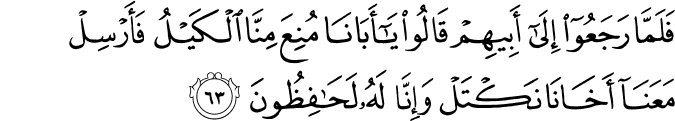 فَلَمَّا رَجَعُوٓا۟ إِلَىٰٓ أَبِيهِمْ قَالُوا۟ يَـٰٓأَبَانَا مُنِعَ مِنَّا ٱلْكَيْلُ فَأَرْسِلْ
مَعَنَآ أَخَانَا نَكْتَلْ وَإِنَّا لَهُۥ لَحَـٰفِظُونَ ٦٣